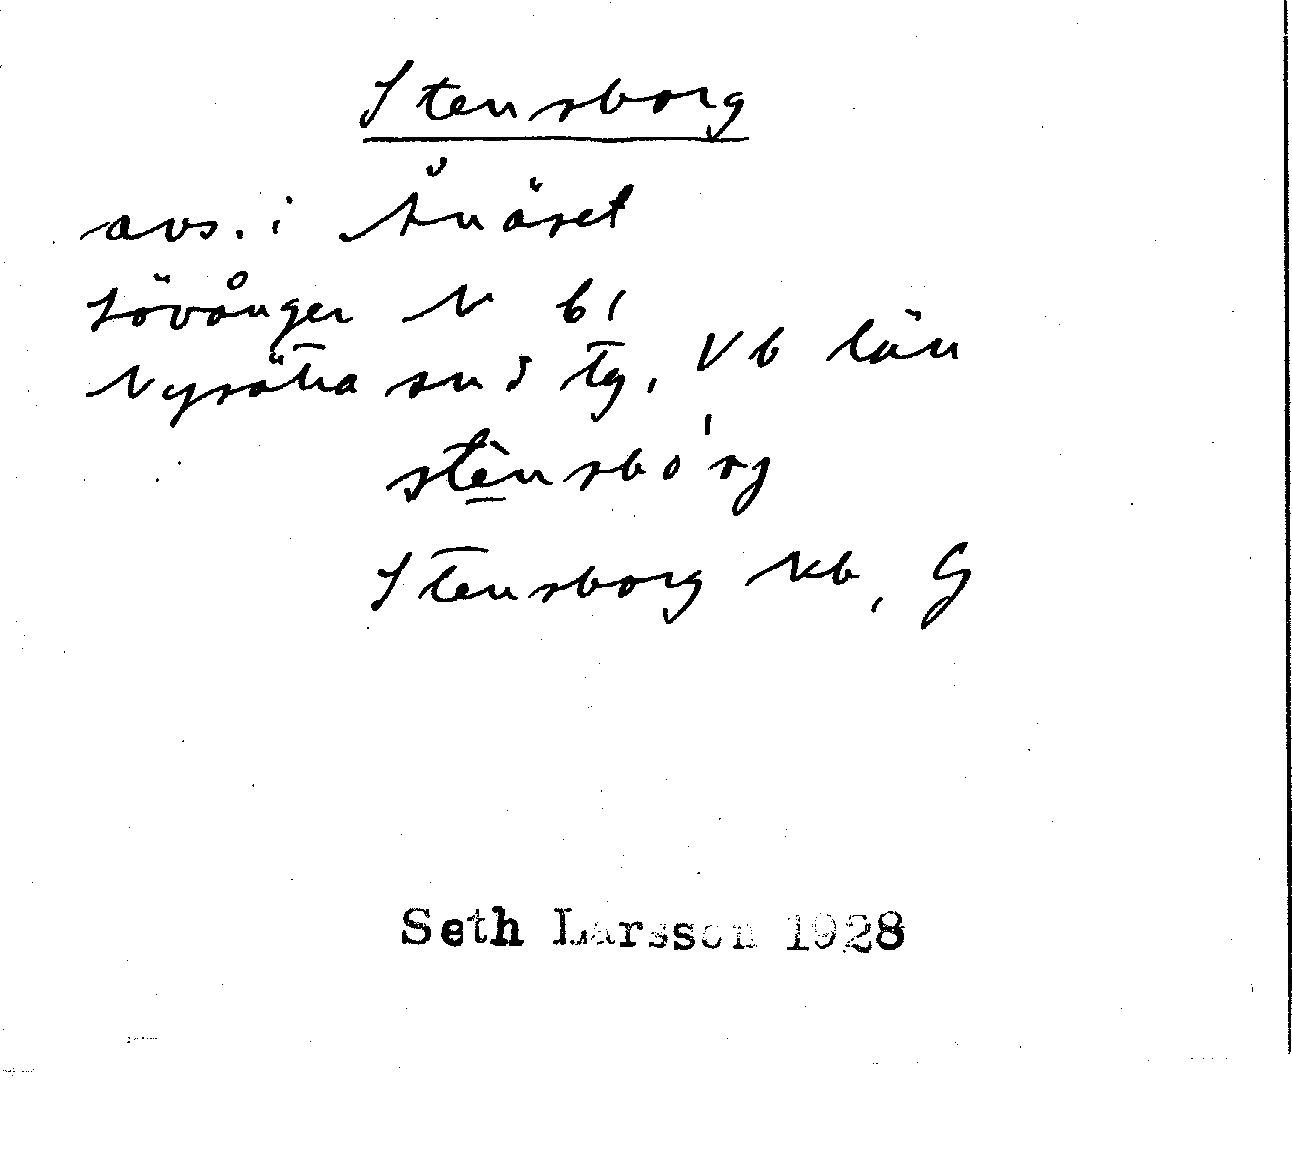 Stensborg
avs. i Ånäset
Lövånger N bl
Nysätra sn S tg, Vb län
stènsbórg
Stensborg kb, G
Seth Larsson 1928